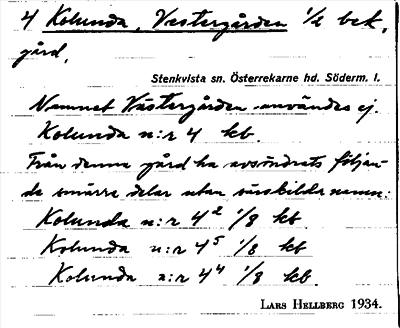 4 Kolunda, Västergården 1/2 bek.
gård.
Stenkvista sn. Österrekarne hd. Söderm. l.
Namnet Västergården användes ej.
Kolunda n:r 4 kb.
Från denna gård ha avsöndrats följan-
de smärre delar utan särskilda namn:
Kolunda n:r 4² 1/8 kb
Kolunda n:r 4⁵ 1/8 kb
Kolunda n:r 4⁴ 1/8 kb.
LARS HELLBERG 1934.